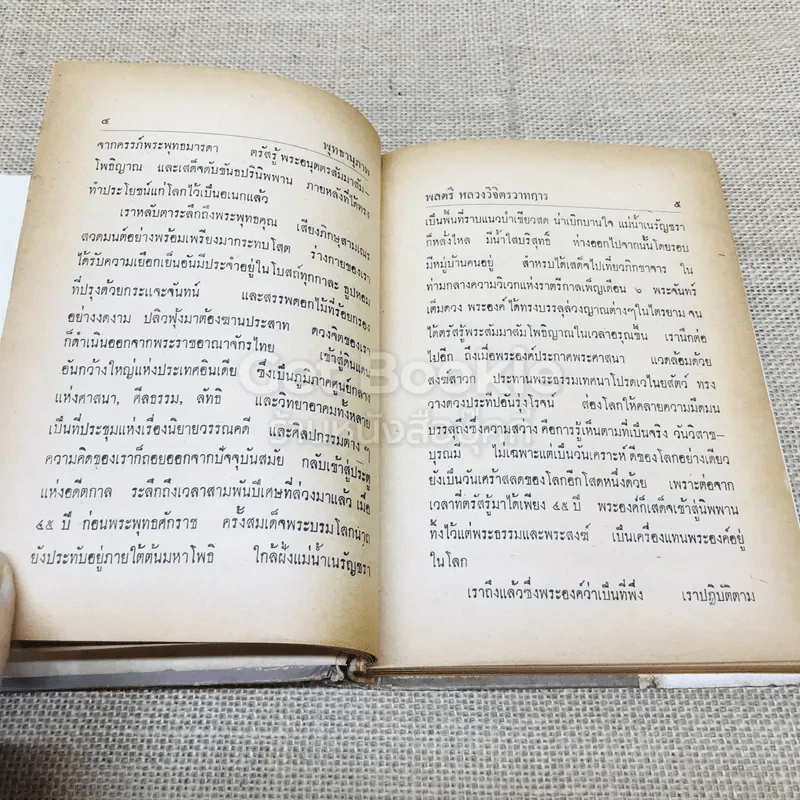 ๔ พุทธานุภาพ
จากครรภ์พระพุทธมารดา ตรัสรู้ พระอนุตตรสัมมาสัม-
โพธิญาณ และเสด็จดับขันธปรินิพพาน ภายหลังที่ได้ทรง
ทำประโยชน์แก่โลกไว้เป็นอเนกแล้ว
เราหลับตาระลึกถึงพระพุทธคุณ เสียงภิกษุสามเณร
สวดมนต์อย่างพร้อมเพรียงมากระทบโสต ร่างกายของเรา
ได้รับความเยือกเย็นอันมีประจำอยู่ในโบสถ์ทุกกาละ ธูปหอม
ที่ปรุงด้วยกระแจะจันทน์ และสรรพดอกไม้ที่ร้อยกรอง
อย่างงดงาม ปลิวฟุ้งมาต้องฆานประสาท ดวงจิตของเรา
ก็ดำเนินออกจากพระราชอาณาจักรไทย เข้าสู่ดินแดน
อันกว้างใหญ่แห่งประเทศอินเดีย ซึ่งเป็นภูมิภาคศูนย์กลาง
แห่งศาสนา, ศีลธรรม, ลัทธิ และวิทยาอาคมทั้งหลาย
เป็นที่ประชุมแห่งเรื่องนิยายวรรณคดี และศิลปกรรมต่าง ๆ
ความคิดของเราก็ถอยออกจากปัจจุบันสมัย กลับเข้าสู่ประตู
แห่งอดีตกาล ระลึกถึงเวลาสามพันปีเศษที่ล่วงมาแล้ว เมื่อ
๔๕ ปี ก่อนพระพุทธศักราช ครั้งสมเด็จพระบรมโลกนาถ
ยังประทับอยู่ภายใต้ต้นมหาโพธิ ใกล้ฝั่งแม่น้ำเนรัญชรา
พลตรี หลวงวิจิตรวาทการ ๕
เป็นพื้นที่ราบแนวป่าเขียวสด น่าเบิกบานใจ แม่น้ำเนรัญชรา
ก็หลั่งไหล มีน้ำใสบริสุทธิ์ ห่างออกไปจากนั้นโดยรอบ
มีหมู่บ้านคนอยู่ สำหรับได้เสด็จไปเที่ยวภิกขาจาร ใน
ท่ามกลางความวิเวกแห่งราตรีกาลเพ็ญเดือน ๖ พระจันทร์
เต็มดวง พระองค์ได้ทรงบรรลุล่วงญาณต่างๆในไตรยาม จน
ได้ตรัสรู้พระสัมมาสัมโพธิญาณในเวลาอรุณขึ้น เรานึกต่อ
ไปอีก ถึงเมื่อพระองค์ประกาศพระศาสนา แวดล้อมด้วย
สงฆ์สาวก ประทานพระธรรมเทศนาโปรดเวไนยสัตว์ ทรง
วางดวงประทีปอันรุ่งโรจน์ ส่องโลกให้คลายความมืดมน
บรรลุถึงซึ่งความสว่าง คือการรู้เห็นตามที่เป็นจริง วันวิสาข-
บุรณมี ไม่เฉพาะแต่เป็นวันเคราะห์ดีของโลกอย่างเดียว
ยังเป็นวันเศร้าสลดของโลกอีกโสดหนึ่งด้วย เพราะต่อจาก
เวลาที่ตรัสรู้มาได้เพียง ๔๕ ปี พระองค์ก็เสด็จเข้าสู่นิพพาน
ทิ้งไว้แต่พระธรรมและพระสงฆ์ เป็นเครื่องแทนพระองค์อยู่
ในโลก
เราถึงแล้วซึ่งพระองค์ว่าเป็นที่พึ่ง เราปฏิบัติตาม
Get Bookie